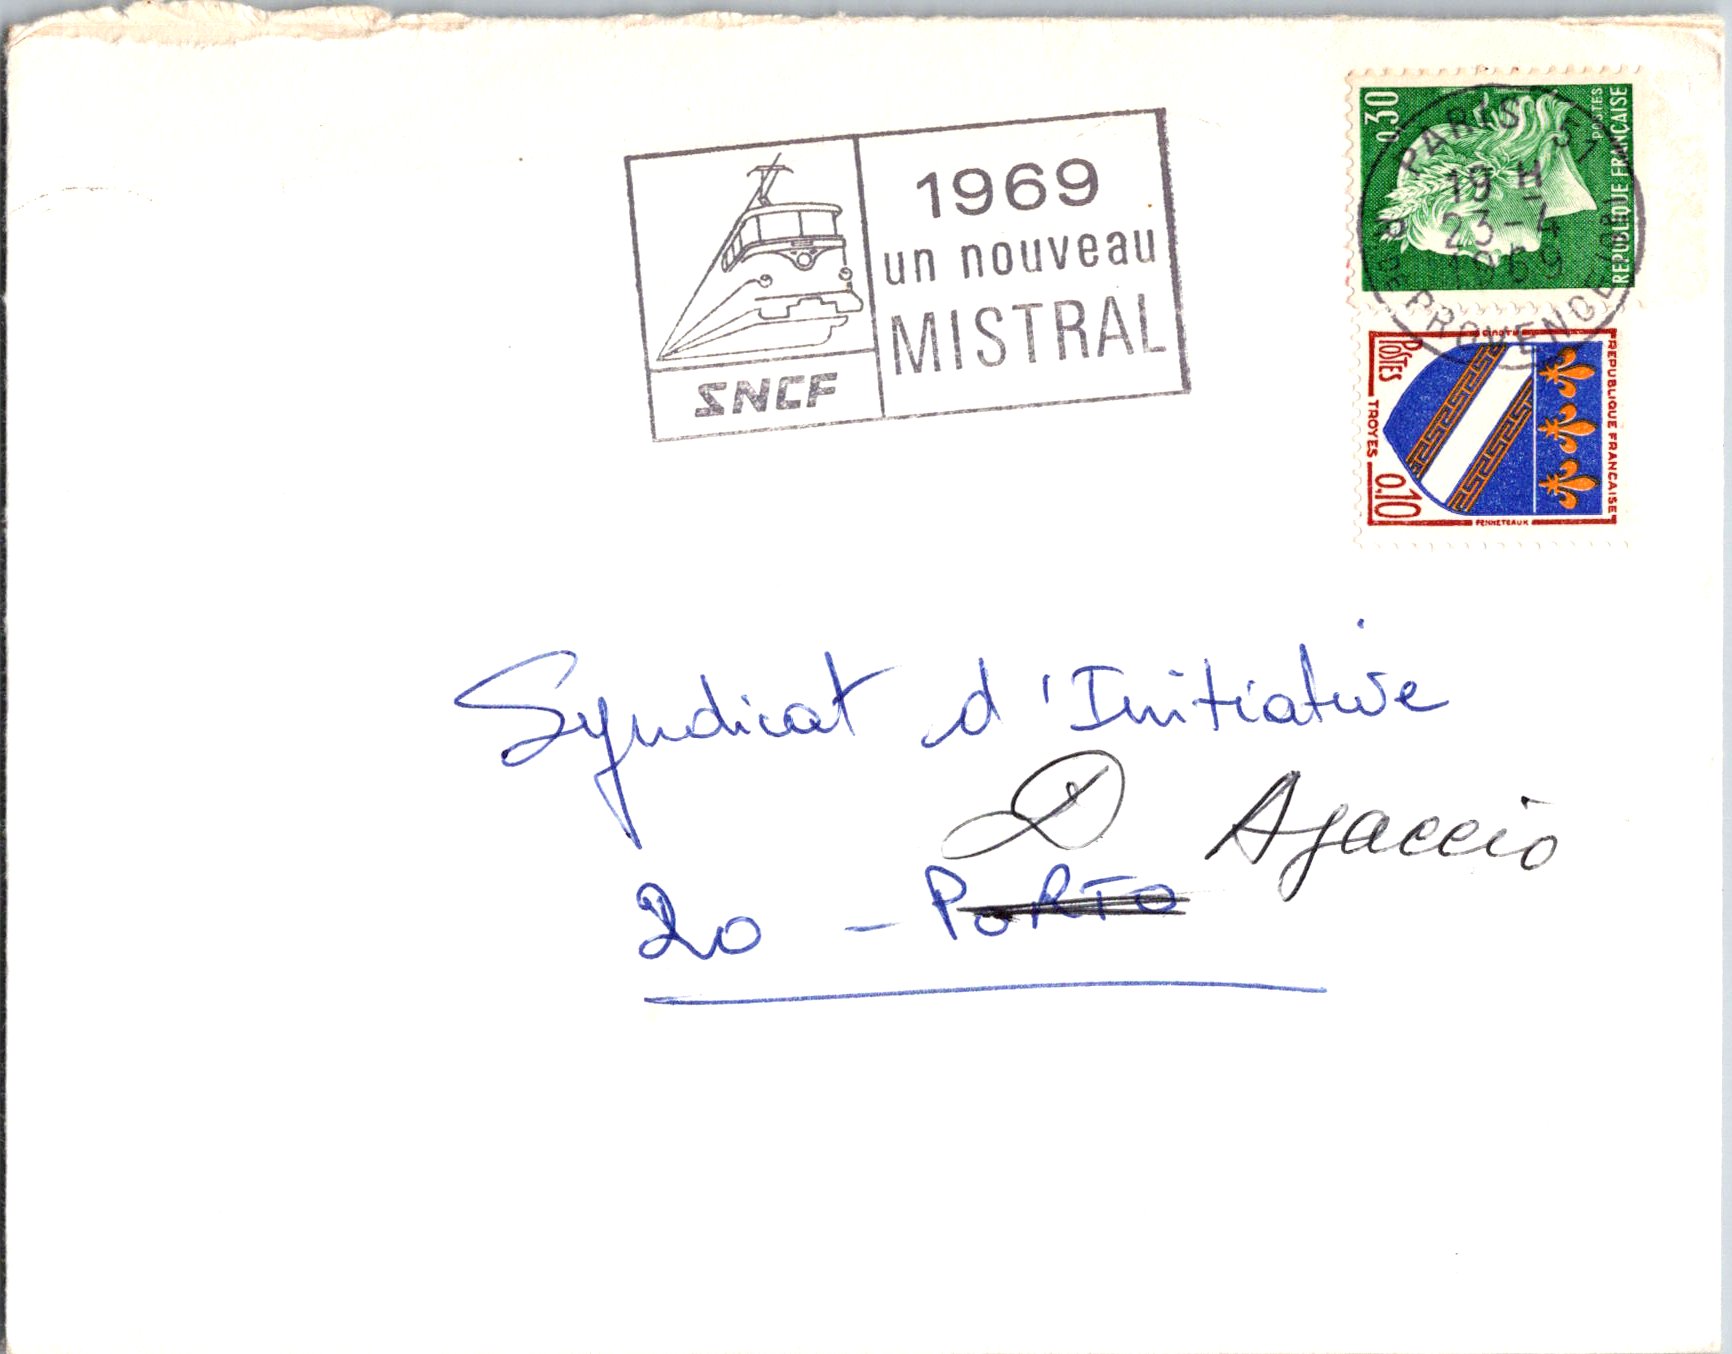 1969
un nouveau
MISTRAL
SNCF
0,30
POSTES
REPUBLIQUE FRANÇAISE
PARIS
19 H
23-4
1969
PROVENCE
POSTES
TROYES
0,10
REPUBLIQUE FRANÇAISE
PENNETEAUX
Syndicat d'Initiative
D Ajaccio
20 - PORTO